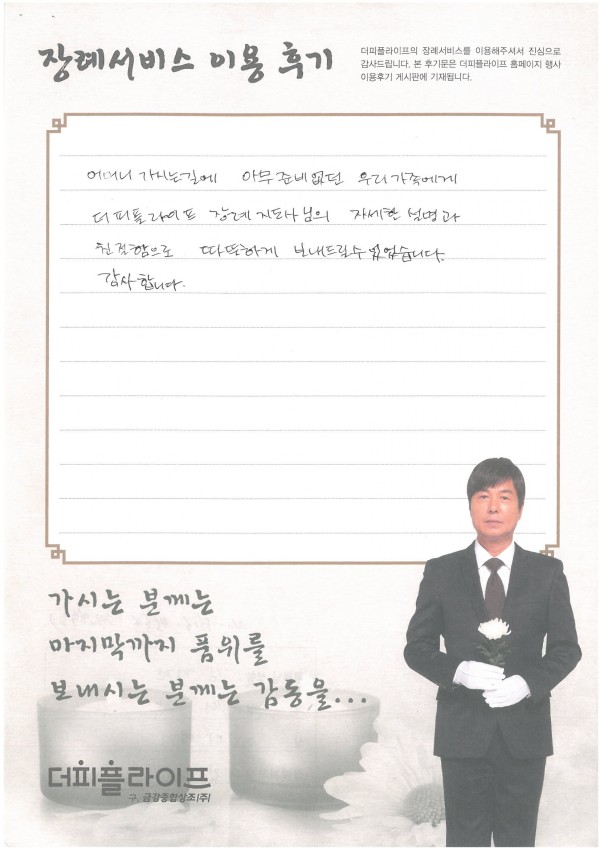 장례서비스 이용 후기
더피플라이프의 장례서비스를 이용해주셔서 진심으로
감사드립니다. 본 후기문은 더피플라이프 홈페이지 행사
이용후기 게시판에 기재됩니다.
어머니 가시는길에 아무 준비없던 우리가족에게
더피플라이프 장례지도사님의 자세한 설명과
친절함으로 따뜻하게 보내드릴수 있었습니다.
감사합니다.
가시는 분께는
마지막까지 품위를
보내시는 분께는 감동을...
더피플라이프
구. 금강종합상조(주)